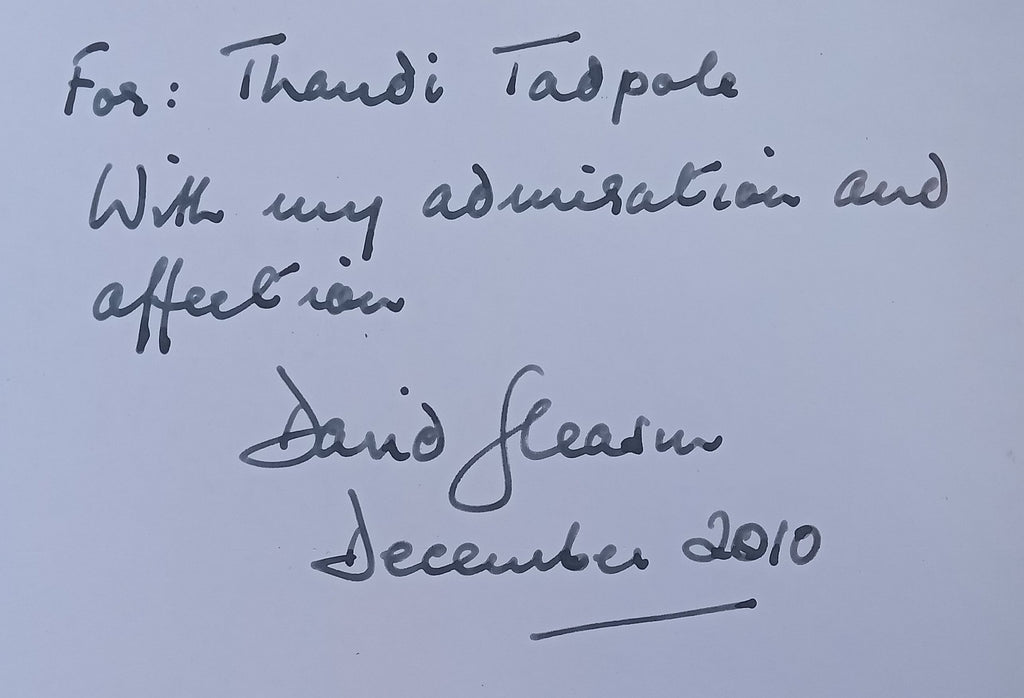 For: Thandi Tadpole
With my admiration and
affection
David Gleason
December 2010